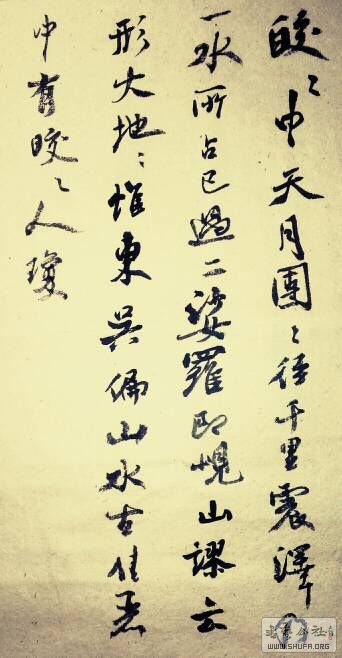 皎々中天月團々徑千里震澤乃
一水所占已過二娑羅即峴山謬云
形大地々惟東吳偏山水古佳麗
中有皎々人瓊
书艺公社
WWW.SHUFA.ORG